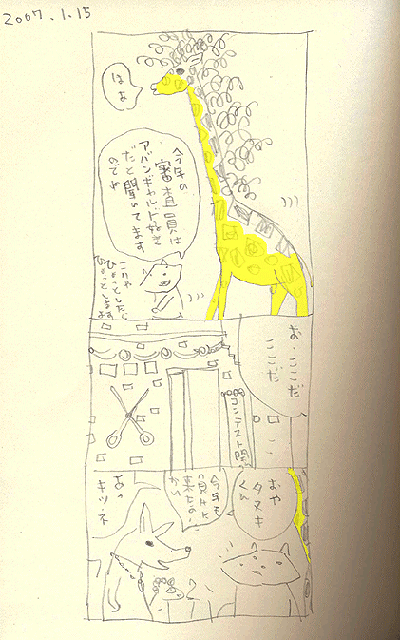 2007.1.15
今年の
審査員は
アバンギャルド好き
だと聞いてます
のでね
はぁ
こりゃ
ひょっとしたら
ひょっとします
お、ここだ
ここだ
コンテスト開
おや
タヌキ
くん
今年も
負けに
来たの
かい
あっ
キツネ